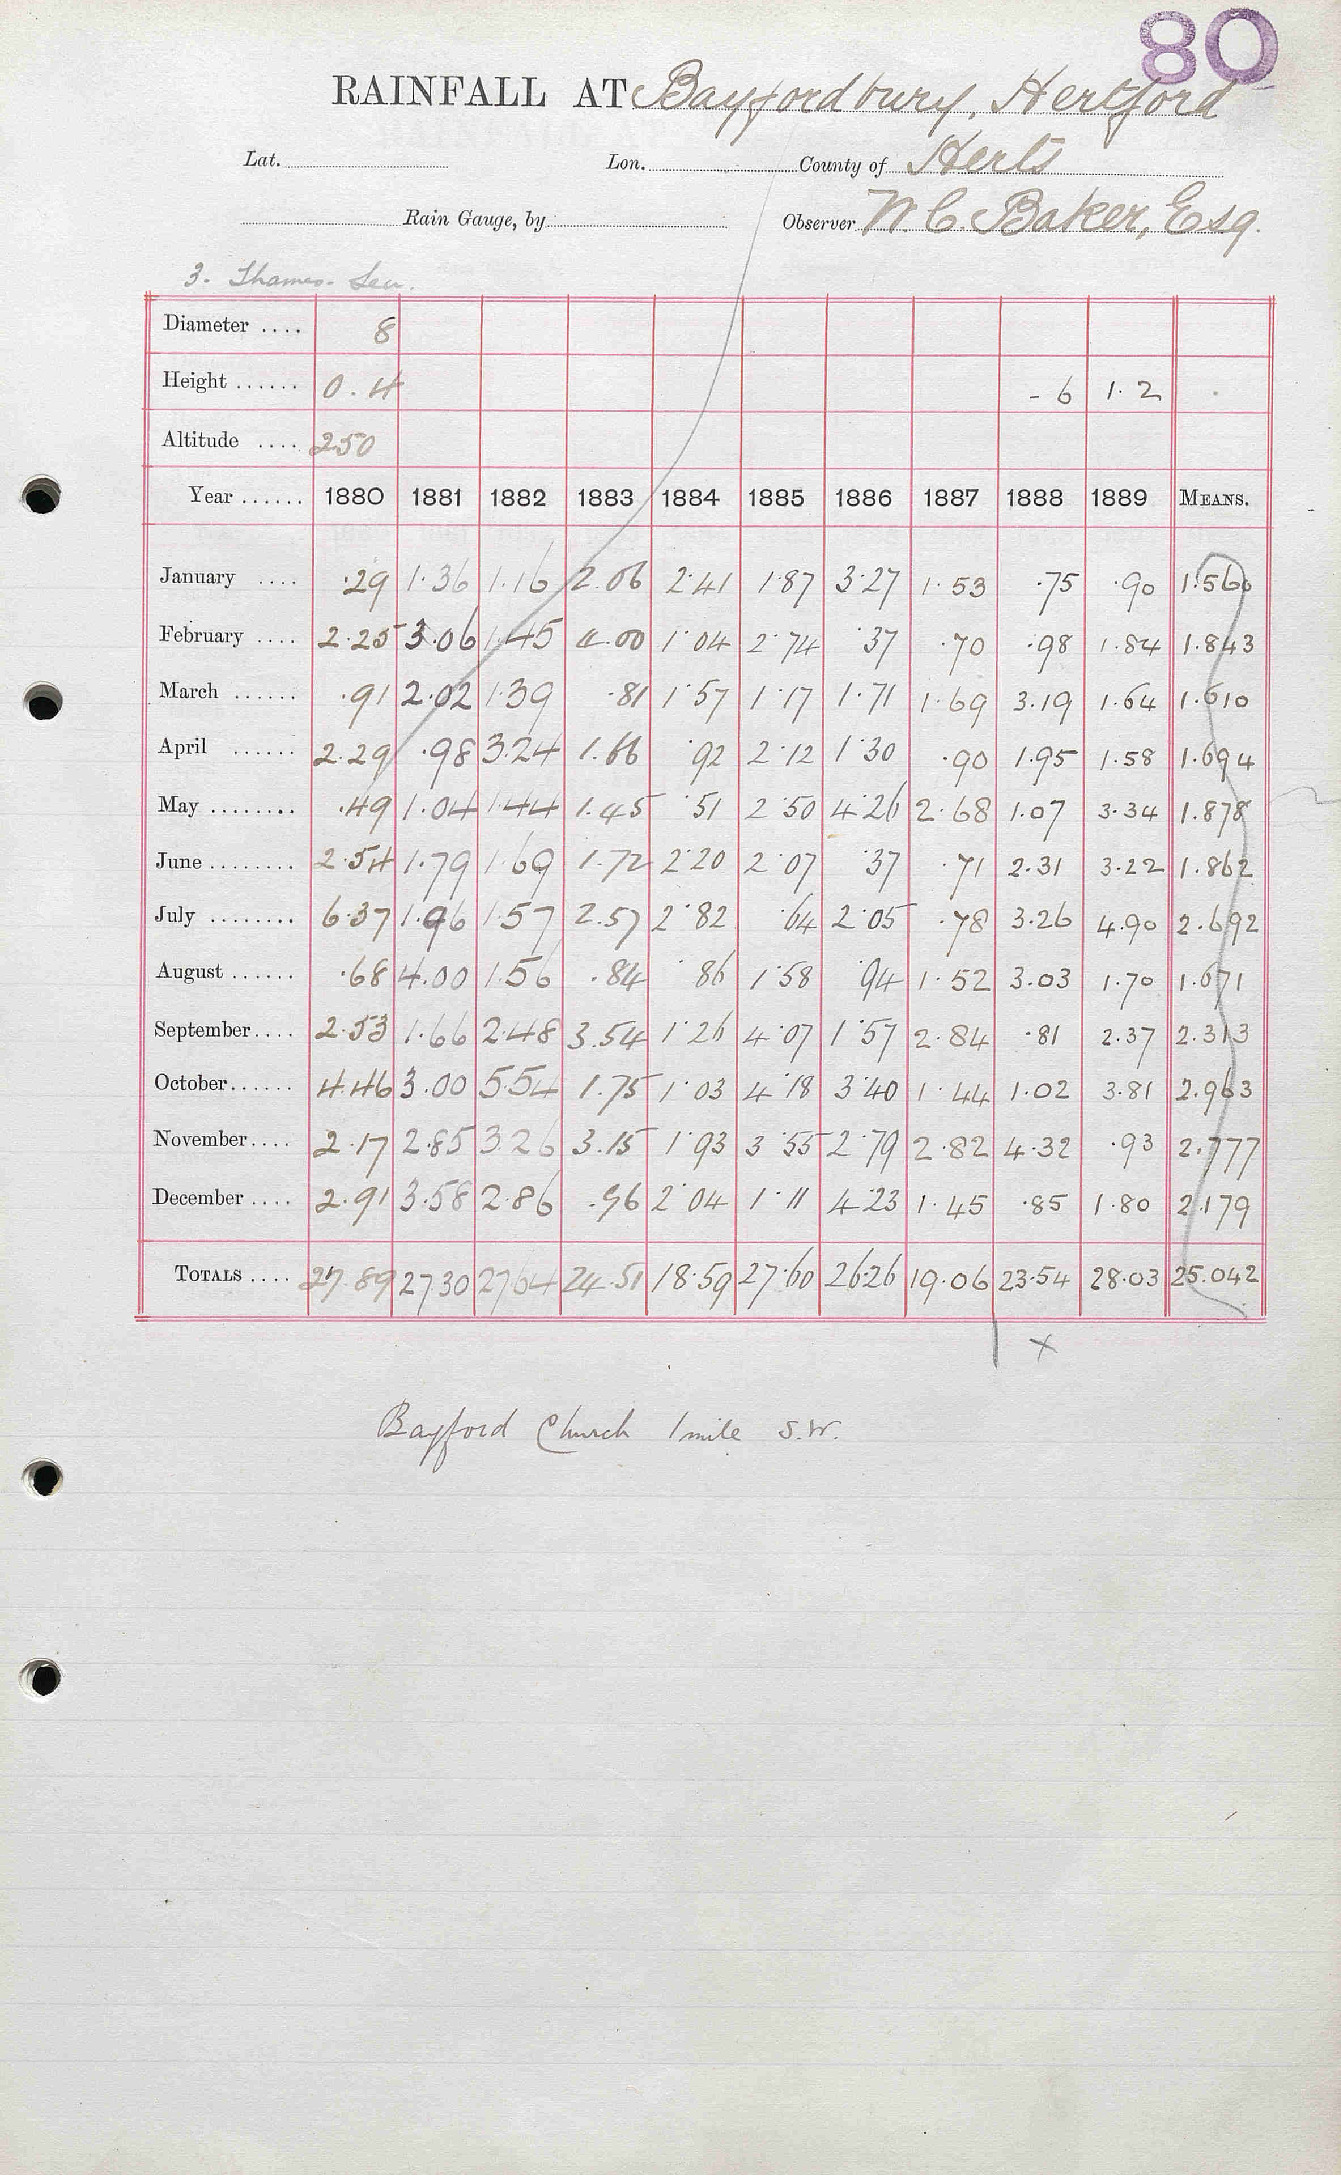 80
RAINFALL AT Bayfordbury, Hertford
Lat. Lon. County of Herts
Rain Gauge, by Observer W. C. Baker, Esq.
3. Thames. Lea.
Diameter .... 8
Height ...... 0.4 - 6 1.2
Altitude .... 250
Year ...... 1880 1881 1882 1883 1884 1885 1886 1887 1888 1889 MEANS.
January .... .29 1.36 1.16 2.06 2.41 1.87 3.27 1.53 .75 .90 1.560
February .... 2.25 3.06 1.45 4.00 1.04 2.74 .37 .70 .98 1.84 1.843
March ...... .91 2.02 1.39 .81 1.57 1.17 1.71 1.69 3.19 1.64 1.610
April ...... 2.29 .98 3.24 1.66 .92 2.12 1.30 .90 1.95 1.58 1.694
May ........ .49 1.04 1.44 1.45 .51 2.50 4.26 2.68 1.07 3.34 1.878
June ........ 2.54 1.79 1.69 1.72 2.20 2.07 .37 .71 2.31 3.22 1.862
July ........ 6.37 1.96 1.57 2.57 2.82 .64 2.05 .78 3.26 4.90 2.692
August ...... .68 4.00 1.56 .84 .86 1.58 .94 1.52 3.03 1.70 1.671
September .... 2.53 1.66 2.48 3.54 1.26 4.07 1.57 2.84 .81 2.37 2.313
October ...... 4.46 3.00 5.54 1.75 1.03 4.18 3.40 1.44 1.02 3.81 2.963
November .... 2.17 2.85 3.26 3.15 1.93 3.55 2.79 2.82 4.32 .93 2.777
December .... 2.91 3.58 2.86 .96 2.04 1.11 4.23 1.45 .85 1.80 2.179
TOTALS .... 27.89 27.30 27.64 24.51 18.59 27.60 26.26 19.06 23.54 28.03 25.042
x
Bayford Church 1 mile S.W.